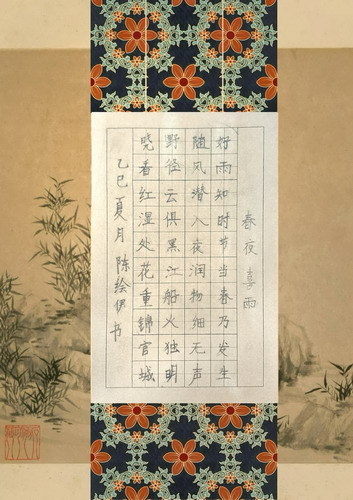 春夜喜雨
好雨知时节当春乃发生
随风潜入夜润物细无声
野径云俱黑江船火独明
晓看红湿处花重锦官城
乙巳夏月陈绘伊书